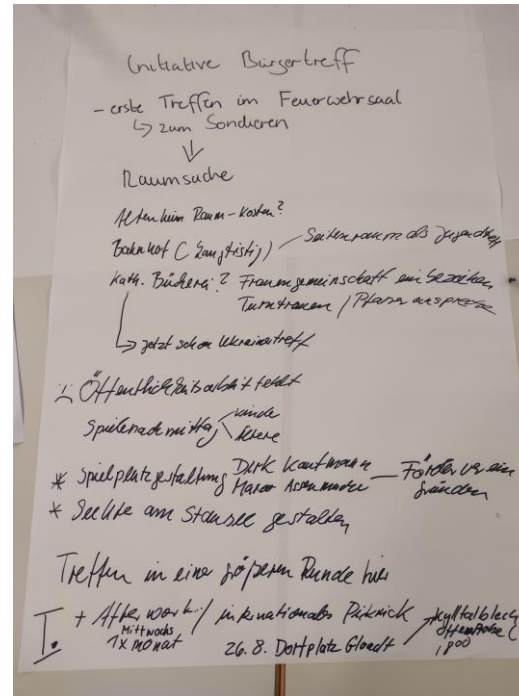 Initiative Bürgertreff
- erste Treffen im Feuerwehrsaal
↳ zum Sondieren
↓
Raumsuche
Altenheim Raum-Kosten?
Bahnhof (langfristig) / Seitenraum als Jugendtreff
Kath. Bücherei? Frauengemeinschaft einbeziehen
Turnfrauen / Pfarrer
↳ jetzt schon Ukrainetreff
Öffentlichkeitsarbeit fehlt
Spielenachmittag < Kinder
Ältere
* Spielplatzgestaltung Dirk Kaufmann — Förderverein
gründen
* Seeküste am Stausee gestalten
Treffen in einer größeren Runde hier
I. + Afterwork / internationales Picknick
Mittwochs
1x Monat
26.8. Dorfplatz